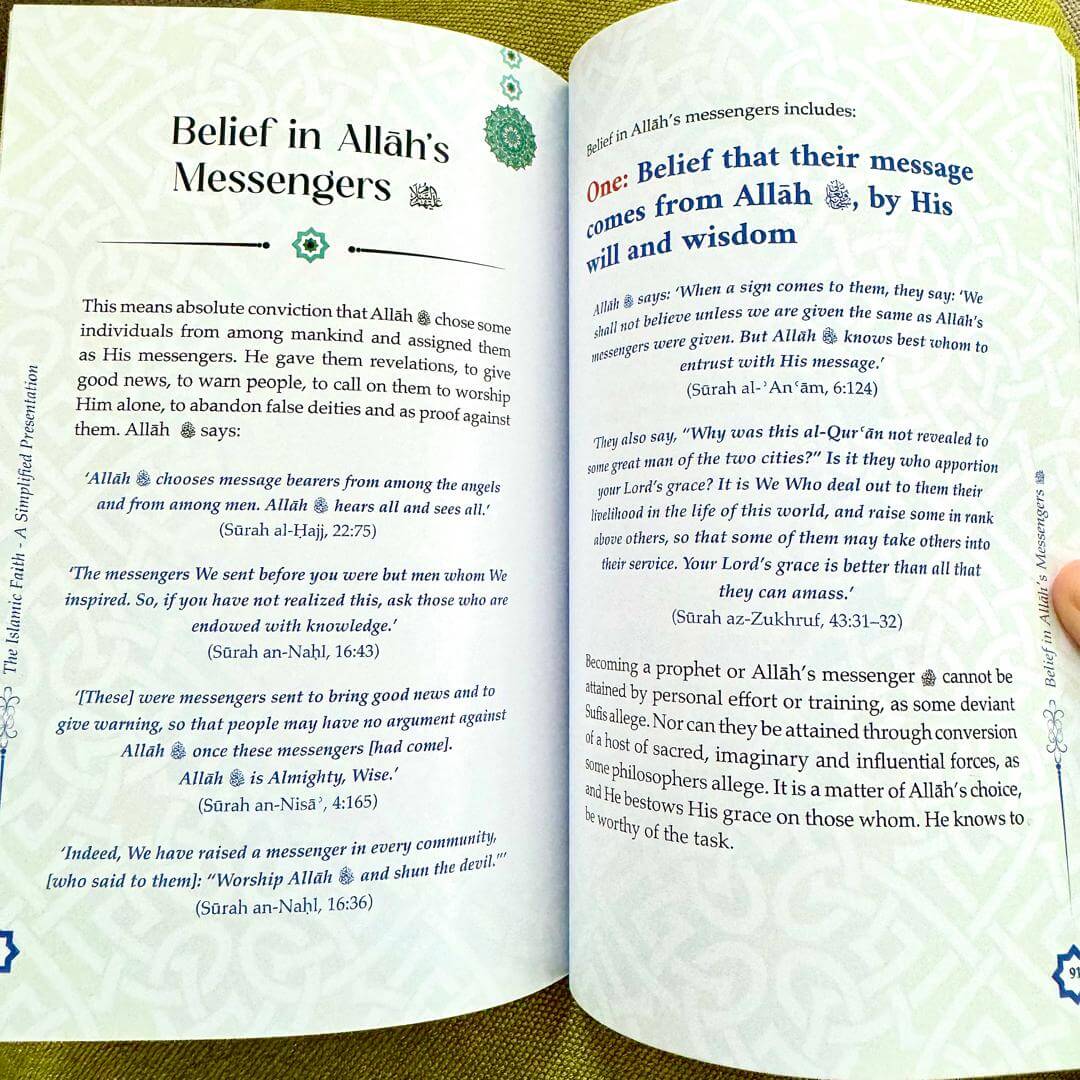 Belief in Allāh's
Messengers
This means absolute conviction that Allāh ﷻ chose some
individuals from among mankind and assigned them
as His messengers. He gave them revelations, to give
good news, to warn people, to call on them to worship
Him alone, to abandon false deities and as proof against
them. Allāh ﷻ says:
‘Allāh ﷻ chooses message bearers from among the angels
and from among men. Allāh ﷻ hears all and sees all.’
(Sūrah al-Ḥajj, 22:75)
‘The messengers We sent before you were but men whom We
inspired. So, if you have not realized this, ask those who are
endowed with knowledge.’
(Sūrah an-Naḥl, 16:43)
‘[These] were messengers sent to bring good news and to
give warning, so that people may have no argument against
Allāh ﷻ once these messengers [had come].
Allāh ﷻ is Almighty, Wise.’
(Sūrah an-Nisāʾ, 4:165)
‘Indeed, We have raised a messenger in every community,
[who said to them]: “Worship Allāh ﷻ and shun the devil.”’
(Sūrah an-Naḥl, 16:36)
The Islamic Faith - A Simplified Presentation
Belief in Allāh's messengers includes:
One: Belief that their message
comes from Allāh ﷻ, by His
will and wisdom
Allāh ﷻ says: ‘When a sign comes to them, they say: ‘We
shall not believe unless we are given the same as Allāh's
messengers were given. But Allāh ﷻ knows best whom to
entrust with His message.’
(Sūrah al-ʾAnʿām, 6:124)
‘They also say, “Why was this al-Qurʿān not revealed to
some great man of the two cities?” Is it they who apportion
your Lord's grace? It is We Who deal out to them their
livelihood in the life of this world, and raise some in rank
above others, so that some of them may take others into
their service. Your Lord's grace is better than all that
they can amass.’
(Sūrah az-Zukhruf, 43:31–32)
Becoming a prophet or Allāh's messenger cannot be
attained by personal effort or training, as some deviant
Sufis allege. Nor can they be attained through conversion
of a host of sacred, imaginary and influential forces, as
some philosophers allege. It is a matter of Allāh's choice,
and He bestows His grace on those whom. He knows to
be worthy of the task.
Belief in Allāh's Messengers
91